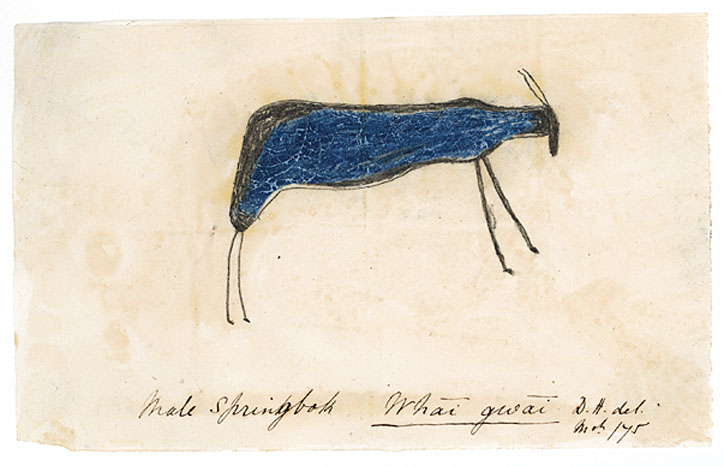 Male Springbok Whāi gwāi D. H. del.
Mch /75